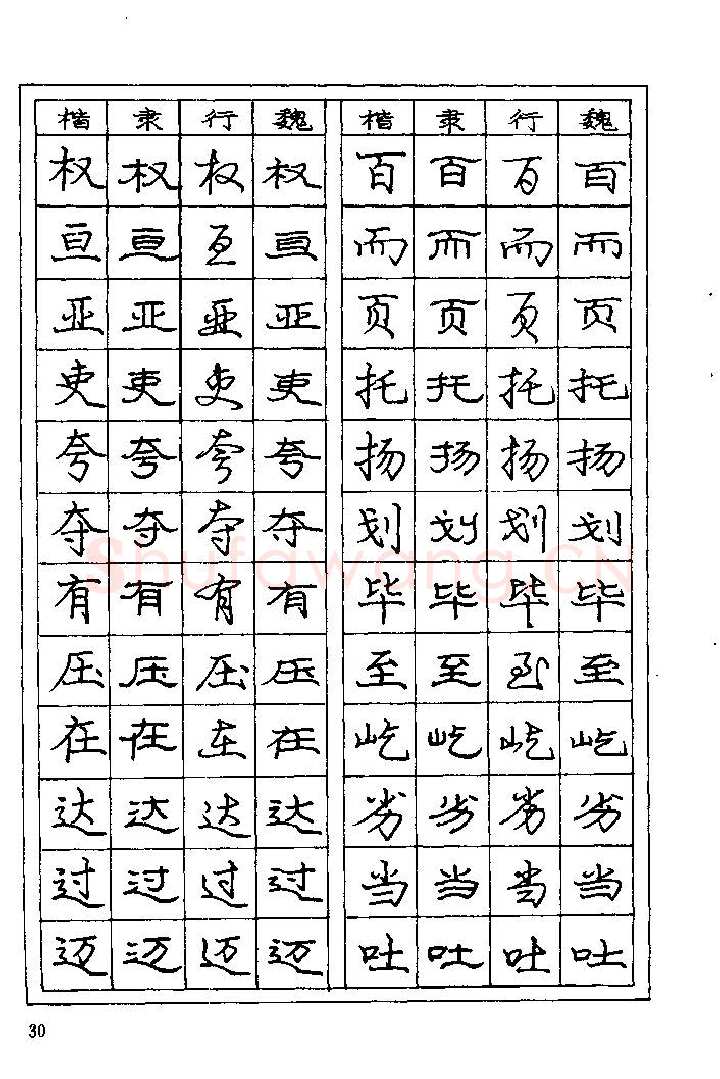 楷 隶 行 魏 楷 隶 行 魏
权 权 权 权 百 百 百 百
亘 亘 亘 亘 而 而 而 而
亚 亚 亚 亚 页 页 页 页
吏 吏 吏 吏 托 托 托 托
夸 夸 夸 夸 扬 扬 扬 扬
夺 夺 夺 夺 划 划 划 划
Shufawang.CN
有 有 有 有 毕 毕 毕 毕
压 压 压 压 至 至 至 至
在 在 在 在 屹 屹 屹 屹
达 达 达 达 劣 劣 劣 劣
过 过 过 过 当 当 当 当
迈 迈 迈 迈 吐 吐 吐 吐
30